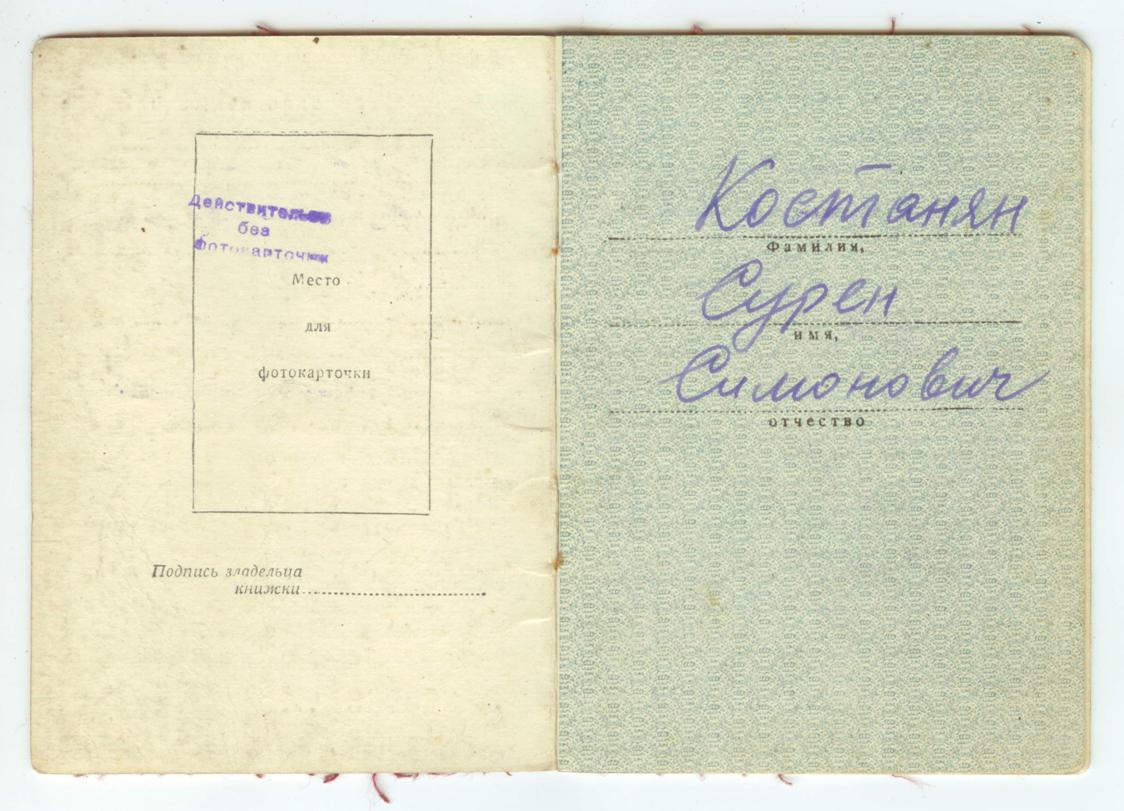 Действительно
без
фотокарточки
Место
для
фотокарточки
Подпись владельца
книжки
Костанян
Фамилия,
Сурен
имя,
Симонович
отчество